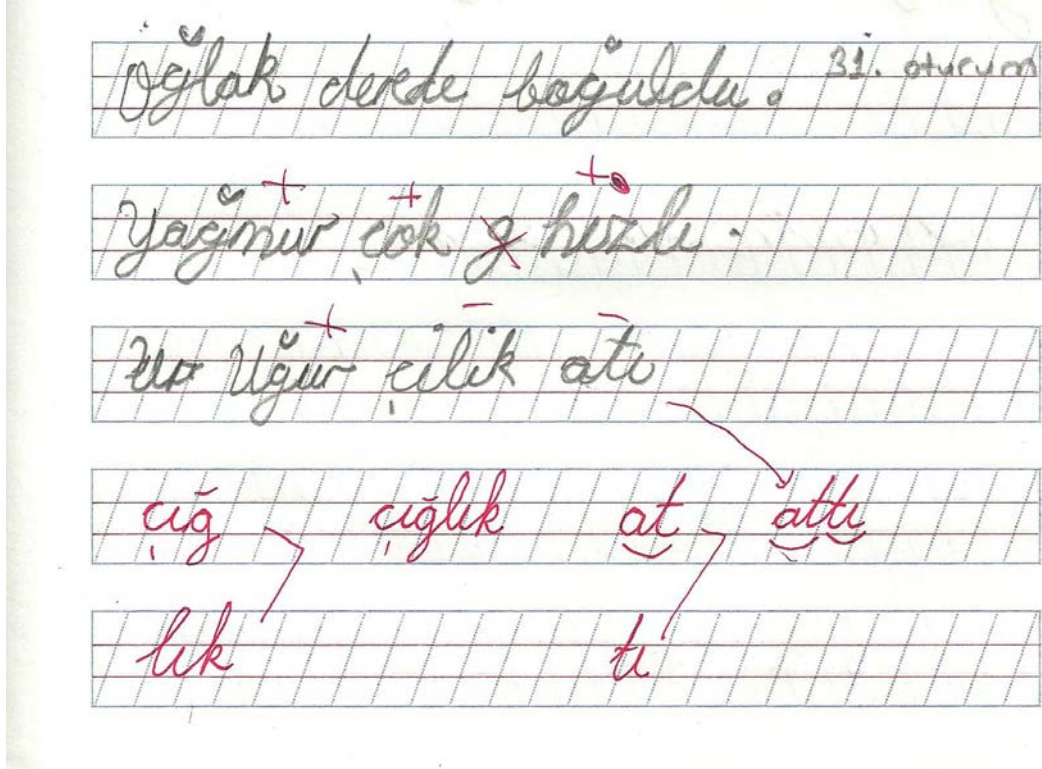 Oğlak derede boğuldu. 31. oturum
Yağmur çok g hızlı.
Ur Uğur çilik atı
çığ çığlık at attı
lık tı